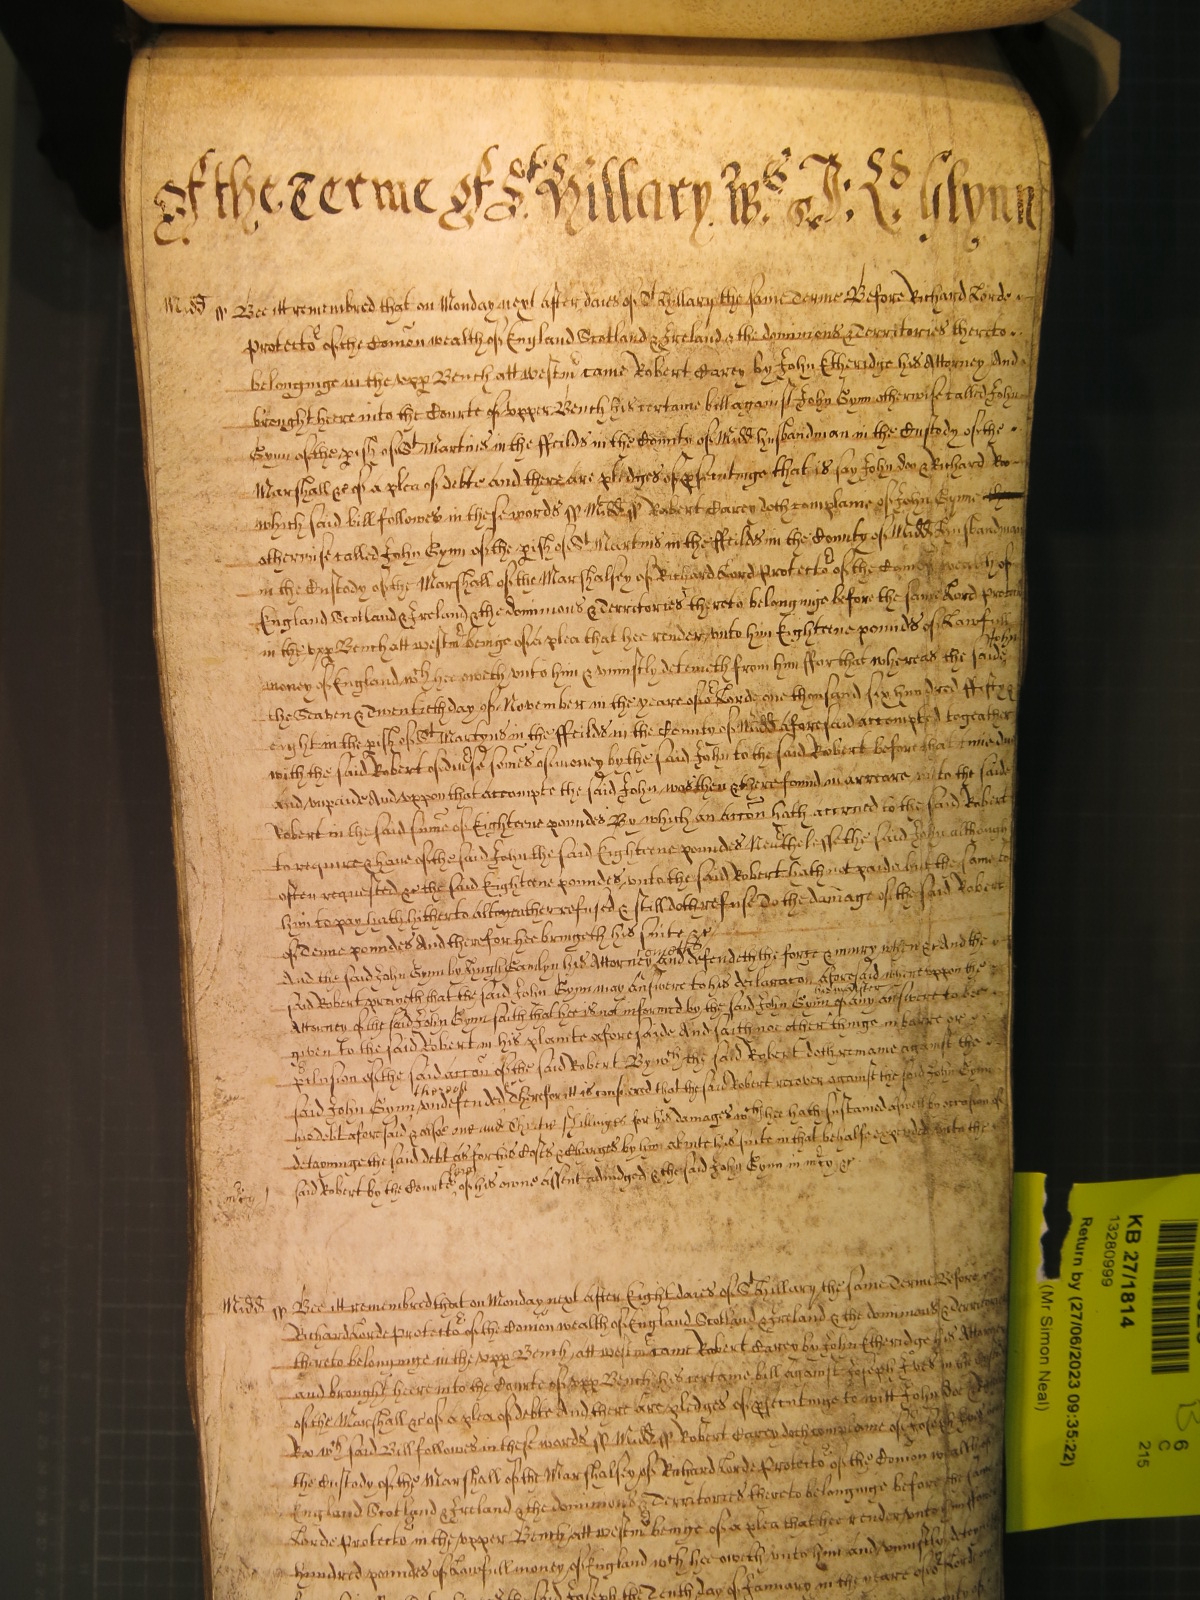 Of the Terme Of St Hillary Ws J: LS Glynn
Midd ss Bee itt remembred that on Monday next after daies of St Hyllary the same Terme Before Richard Lorde
Protector of the Comon wealth of England Scotland & Ireland & the dominions & Territories thereto
belonginge in the vpp Bench att westmr came Robert Carey by John Etheridge his Attorney And
brought heere into the Courte of vpper Bench his certaine bill against John Gynn otherwise called John
Gynn of the pish of St Martins in the ffeilds in the County of Midd husbandman in the Custody of the
Marshall &c of a plea of debte And there are pledges of psecutinge that is say John doe & Richard Roo
which said bill followes in these words ss Midd ss Robert Carey doth complaine of John Gynne
otherwise called John Gynn of the pish of St Martins in the ffeilds in the County of Midd husbandman
in the Custody of the Marshall of the Marshalsey of Richard Lord Protector of the Comon wealth of
England Scotland & Ireland & the dominions & Territories thereto belonginge before the same Lord Protector
in the vpp Bench att westmr beinge of a plea that hee render vnto him Eighteene pounds of Lawfull
money of England wch hee oweth vnto him & vniustly deteineth from him ffor that whereas the said John
the Seaven & Twentieth day of November in the yeare of or Lorde one thousand six hundred ffifty &
eight in the pish of St Martyns in the ffeilds in the County of Midd aforesaid accompted togeather
with the said Robert of divrse somes of money by the said John to the said Robert before that time due
and vnpaide And vppon that accompte the said John was then & there found in arreare vnto the saide
Robert in the said sume of Eighteene poundes By which an accon hath accrued to the said Robert
to require & have of the said John the said Eighteene poundes Nevrthelesse the said John although
often requested &c the said Eighteene poundes vnto the said Robert hath not paide but the same to
him to pay hath hitherto altogeather refused & still doth refuse To the damage of the said Robert
of Tenne poundes And therefor hee bringeth his suite &c
And the said John Gynn by Hugh Hamlyn his Attorney cometh and defendeth the force & iniury when &c And the
said Robert prayeth that the said John Gynn may answere to his declaracon aforesaid whereuppon the
Attorney of the said John Gynn saith that hee is not informed by the said John Gynn his master of any answere to bee
given to the said Robert in his plainte aforesaide And saith noe other thinge in barre or
pclusion of the said accon of the said Robert By wch the said Robert doth remaine against the
said John Gynn therof vndefended Therefore itt is considered that the said Robert recover against the said John Gynn
his debt aforesaid & alsoe one and Thirtie shillinges for his damages wch hee hath sustained aswell by occasion of
detayninge the said debt as for his Costs & Charges by him aboute his suite in that behalfe expended vnto the
said Robert by the Courte here of his owne assent adiudged & the said John Gynn in mrcy &c
mrcy
Midd ss Bee itt remembred that on Monday next after Eight daies of St Hillary the same Terme Before
Richard Lorde Protector of the Comon wealth of England Scotland & Ireland & the dominions & Territories
thereto belonginge in the vpp Bench att westmr came Robert Carey by John Etheridge his Attorney
and brought heere into the Courte of vpp Bench his certaine bill against Joseph Ives in the Custody
of the Marshall &c of a plea of debte And there are pledges of psecutinge to witt John Doe & Richard
Roo wch said Bill followes in these words ss Midd ss Robert Carey doth complaine of Joseph Ives in
the Custody of the Marshall of the Marshalsey of Richard Lorde Protector of the Comon wealth of
England Scotland & Ireland & the dominions & Territories thereto belonginge before the same
Lorde Protector in the vpper Bench att westmr beinge of a plea that hee render vnto him
hundred poundes of Lawfull money of England wch hee oweth vnto him and vniustly deteineth
the said Joseph the Tenth day of January in the yeare of or Lorde
KB 27/1814
13280999
Return by (27/06/2023 09:35:22)
(Mr Simon Neal)
6
C
215